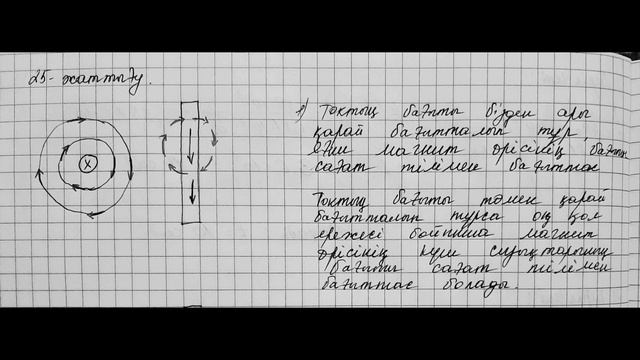 25-жаттығу.
1) Токтың бағыты бізден ары
қарай бағытталып тұр,
яғни магнит өрісінің бағыты
сағат тілімен бағыттас
Токтың бағыты төмен қарай
бағытталып тұрса оң қол
ережесі бойынша магнит
өрісінің күш сызықтарының
бағыты сағат тілімен
бағыттас болады.